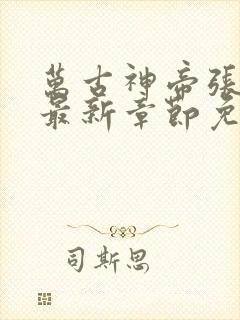 萬古神帝張
最新章節免
司斯思